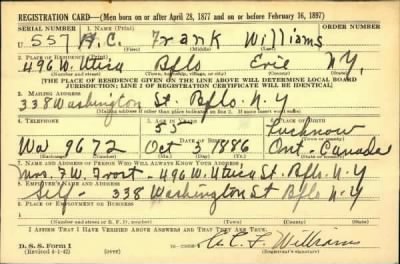 REGISTRATION CARD—(Men born on or after April 28, 1877 and on or before February 16, 1897)
SERIAL NUMBER 1. NAME (Print) ORDER NUMBER
U 557 A.C. Frank Williams
(First) (Middle) (Last)
2. PLACE OF RESIDENCE (Print)
496 W. Utica Bflo Erie N.Y.
(Number and street) (Town, township, village, or city) (County) (State)
[THE PLACE OF RESIDENCE GIVEN ON THE LINE ABOVE WILL DETERMINE LOCAL BOARD
JURISDICTION; LINE 2 OF REGISTRATION CERTIFICATE WILL BE IDENTICAL]
3. MAILING ADDRESS
338 Washington St. Bflo. N.Y.
[Mailing address if other than place indicated on line 2. If same insert word same]
4. TELEPHONE 5. AGE IN YEARS 6. PLACE OF BIRTH
55 Lucknow
DATE OF BIRTH
Wa 9672 Oct 3 1886 Ont. Canada
7. NAME AND ADDRESS OF PERSON WHO WILL ALWAYS KNOW YOUR ADDRESS
Mrs. F.W. Frost - 496 W. Utica St. Bflo. N.Y.
8. EMPLOYER'S NAME AND ADDRESS
Self - 338 Washington St Bflo N.Y
9. PLACE OF EMPLOYMENT OR BUSINESS
(Number and street or R. F. D. number) (Town) (County) (State)
I AFFIRM THAT I HAVE VERIFIED ABOVE ANSWERS AND THAT THEY ARE TRUE.
D. S. S. Form 1
(Revised 4-1-42) (over)
A.C.F. Williams
(Registrant's signature)